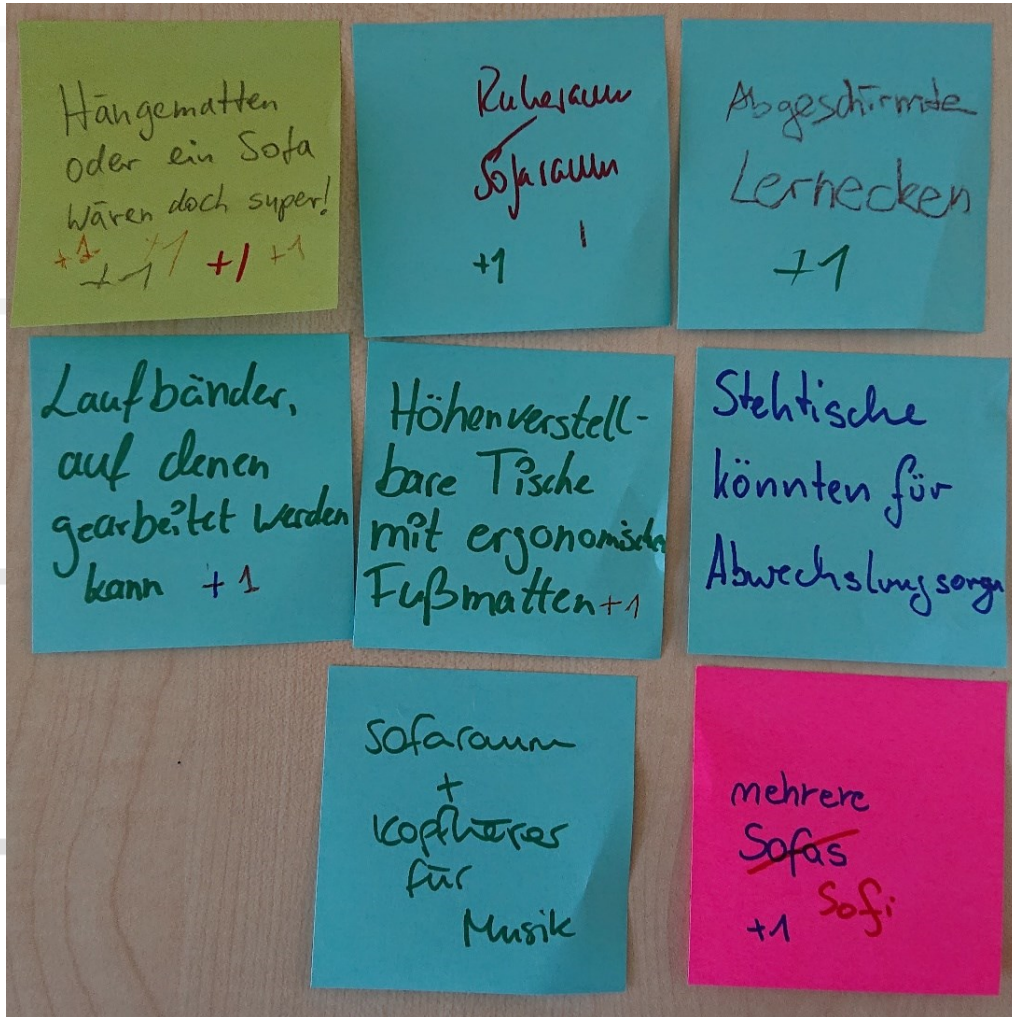 Hängematten
oder ein Sofa
wären doch super!
+1 +1 +1 +1 +1
Ruheraum
Sofaraum
+1 |
Abgeschirmte
Lernecken
+1
Laufbänder,
auf denen
gearbeitet werden
kann +1
Höhenverstell-
bare Tische
mit ergonomischen
Fußmatten +1
Stehtische
könnten für
Abwechslung sorgen
Sofaraum
+
Kopfhörer
für
Musik
mehrere
Sofas
Sofi
+1